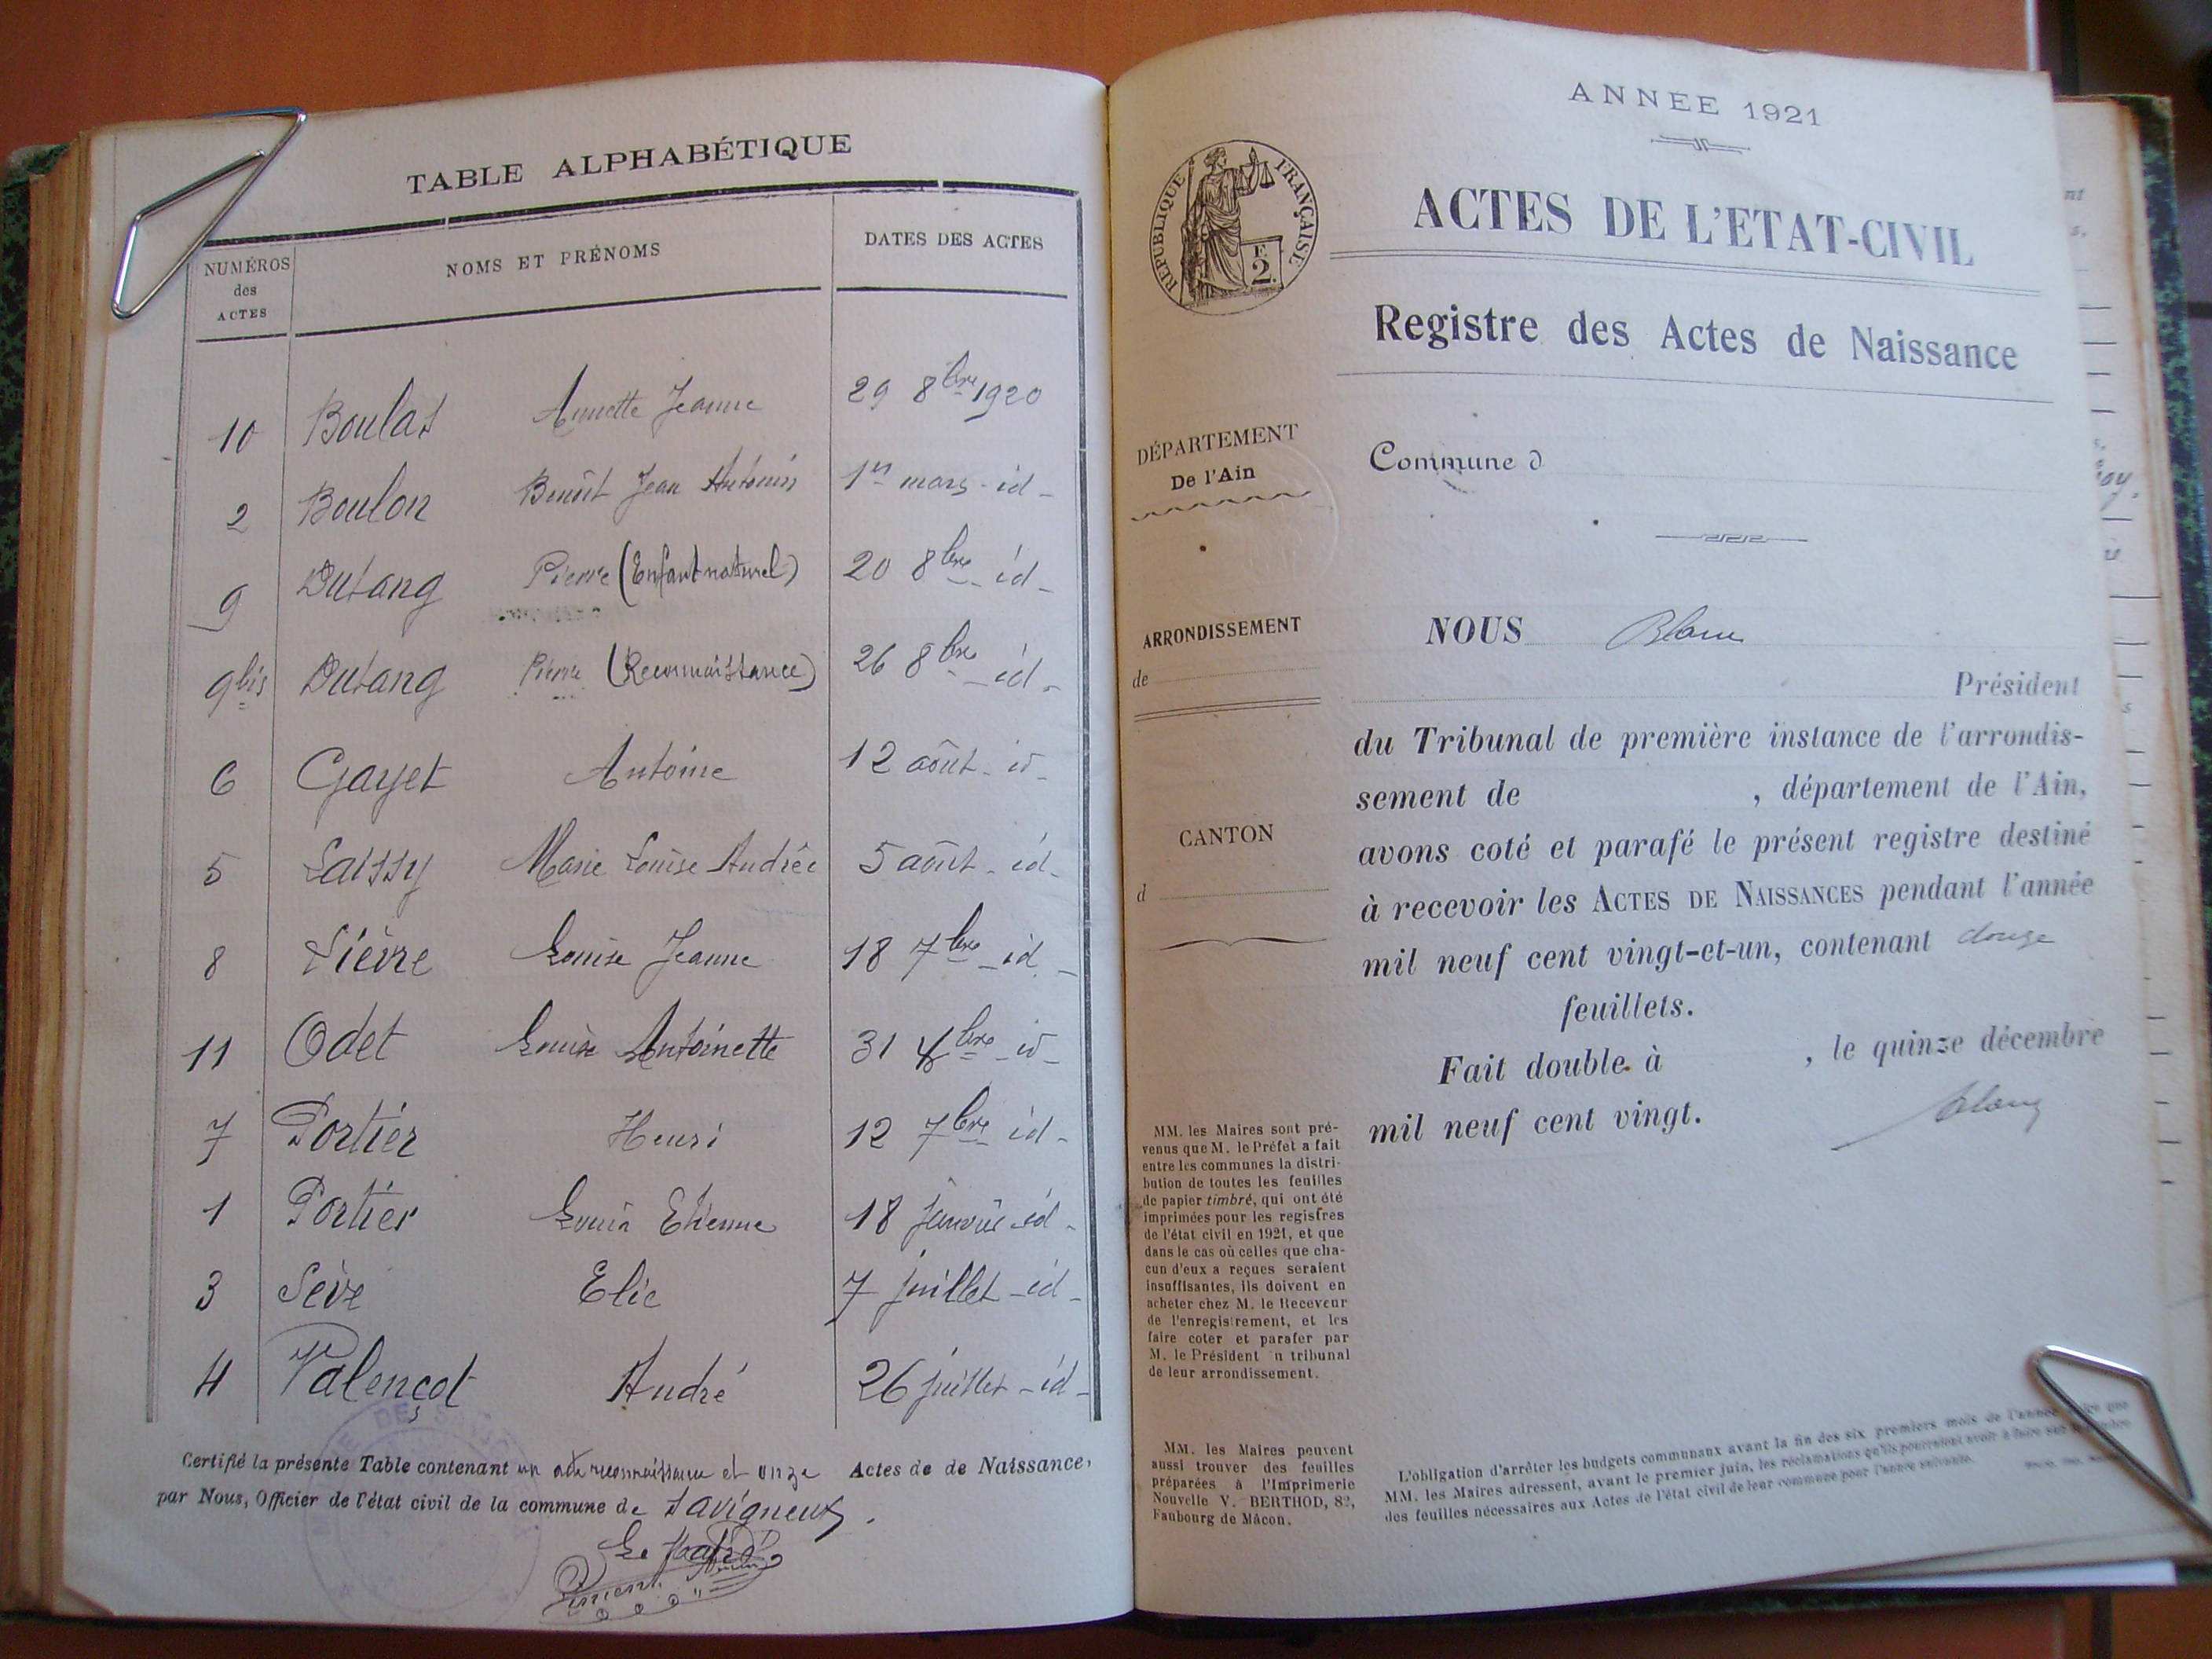 TABLE ALPHABÉTIQUE
NUMÉROS des ACTES NOMS ET PRÉNOMS DATES DES ACTES
10 Boulat Annette Jeanne 29 8bre 1920
2 Boulon Benoît Jean Antonin 1er mars - id -
9 Dutang Pierre (Enfant naturel) 20 8bre - id -
9bis Dutang Pierre (Reconnaissance) 26 8bre - id -
6 Gayet Antoine 12 août - id -
5 Laissy Marie Louise Andrée 5 août - id -
8 Lièvre Louise Jeanne 18 7bre - id -
11 Odet Louise Antoinette 31 bre - id -
7 Portier Henri 12 7bre id -
1 Portier Louis Etienne 18 janvier id -
3 Sève Elie 7 juillet - id -
4 Valençot André 26 juillet - id -
Certifié la présente Table contenant un acte reconnaissance et onze Actes de de Naissance,
par Nous, Officier de l'état civil de la commune de Savigneux.
Le Maire
ANNÉE 1921
RÉPUBLIQUE FRANÇAISE
F
2.
ACTES DE L'ETAT-CIVIL
Registre des Actes de Naissance
DÉPARTEMENT
De l'Ain
Commune d
ARRONDISSEMENT
de
CANTON
d
NOUS Blanc
Président
du Tribunal de première instance de l'arrondis-
sement de , département de l'Ain,
avons coté et parafé le présent registre destiné
à recevoir les ACTES DE NAISSANCES pendant l'année
mil neuf cent vingt-et-un, contenant douze
feuillets.
Fait double à , le quinze décembre
mil neuf cent vingt.
Blanc
MM. les Maires sont pré-
venus que M. le Préfet a fait
entre les communes la distri-
bution de toutes les feuilles
de papier timbré, qui ont été
imprimées pour les registres
de l'état civil en 1921, et que
dans le cas où celles que cha-
cun d'eux a reçues seraient
insuffisantes, ils doivent en
acheter chez M. le Receveur
de l'enregistrement, et les
faire coter et parafer par
M. le Président u tribunal
de leur arrondissement.
MM. les Maires peuvent
aussi trouver des feuilles
préparées à l'Imprimerie
Nouvelle V. BERTHOD, 82,
Faubourg de Mâcon.
L'obligation d'arrêter les budgets communaux avant la fin des six premiers mois de l'année exige que
MM. les Maires adressent, avant le premier juin, les réclamations qu'ils pourraient avoir à faire sur le nombre
des feuilles nécessaires aux Actes de l'état civil de leur commune pour l'année suivante.